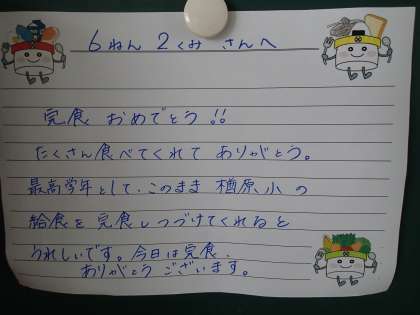 6ねん 2くみ さんへ
完食 おめでとう!!
たくさん食べてくれて ありがとう。
最高学年として、このまま 楢原小の
給食を 完食しつづけてくれると
うれしいです。今日は完食、
ありがとう ございます。